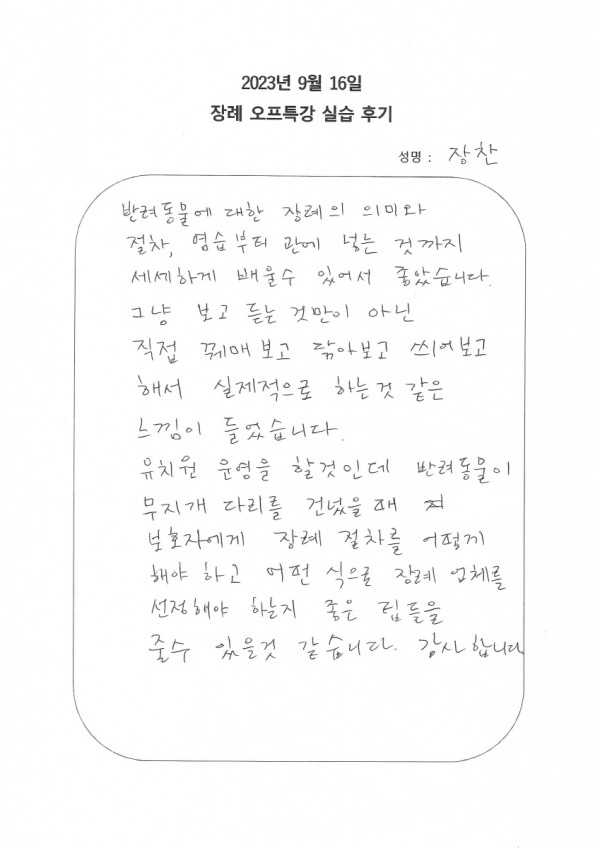 2023년 9월 16일
장례 오프특강 실습 후기
성명 : 장찬
반려동물에 대한 장례의 의미와
절차, 염습부터 관에 넣는 것까지
세세하게 배울수 있어서 좋았습니다.
그냥 보고 듣는 것만이 아닌
직접 꿰매보고 닦아보고 씌어보고
해서 실제적으로 하는것 같은
느낌이 들었습니다.
유치원 운영을 할것인데 반려동물이
무지개 다리를 건넜을때
보호자에게 장례 절차를 어떻게
해야 하고 어떤 식으로 장례 업체를
선정해야 하는지 좋은 팁들을
줄수 있을것 같습니다. 감사합니다